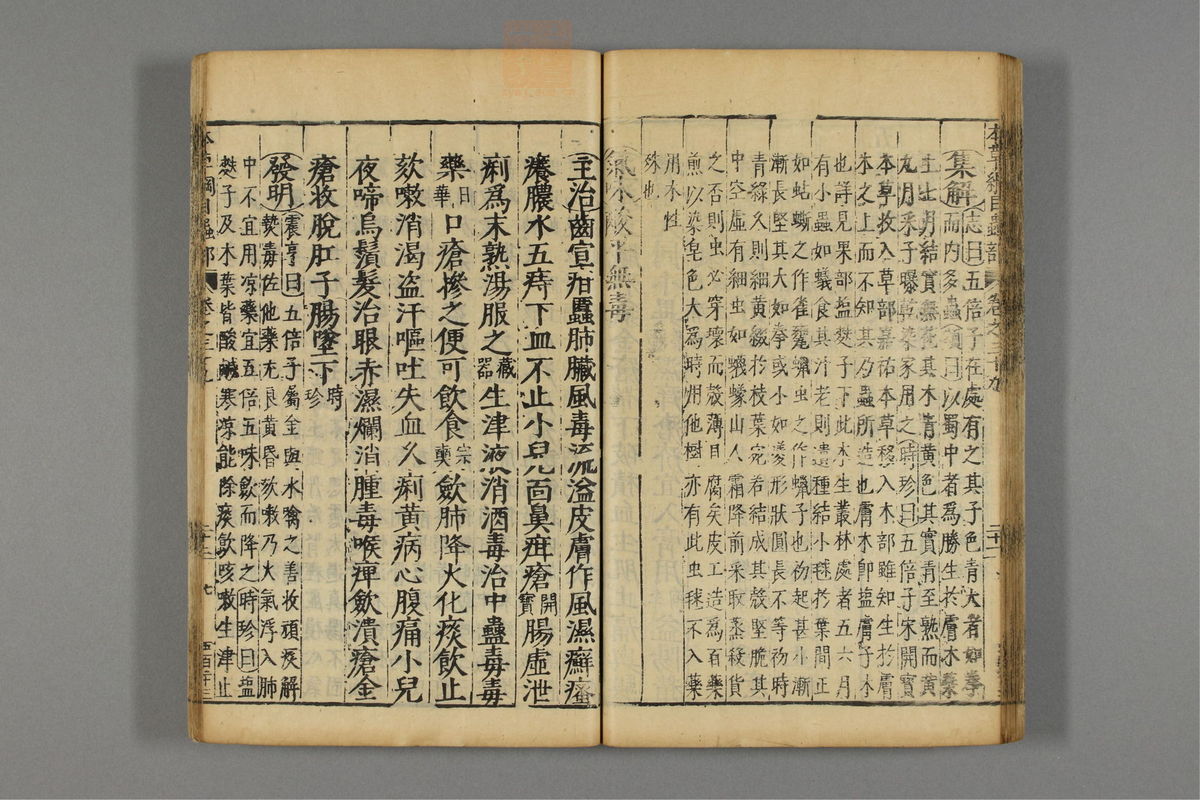 本草綱目蟲部 卷之三十九
集解志曰五倍子在處有之其子色青大者如拳
而內多蟲頌曰以蜀中者為勝生於膚木葉
上七月結實無花其木青黃色其實青至熟而黃
九月采子曝乾染家用之時珍曰五倍子宋開寶
本草收入草部嘉祐本草移入木部雖知生於膚
木之上而不知其乃蟲所造也膚木卽鹽膚子木
也詳見果部鹽麩子下此木生叢林處者五六月
有小蟲如蟻食其汁老則遺種結小毬於葉間正
如蛄蟖之作雀甕蠟虫之作蠟子也初起甚小漸
漸長堅其大如拳或小如菱形狀圓長不等初時
青綠久則細黃綴於枝葉宛若結成其殼堅脆其
中空虛有細虫如蠛蠓山人霜降前采取蒸殺貨
之否則虫必穿壞而殼薄且腐矣皮工造為百藥
煎以染皂色大為時用他樹亦有此虫毬不入藥
用木性
殊也
氣味酸平無毒
主治齒宣疳䘌肺臟風毒流溢皮膚作風濕癬瘡
癢膿水五痔下血不止小兒面鼻疳瘡開寶腸虛泄
痢為末熟湯服之藏器生津液消酒毒治中蠱毒毒
藥日華口瘡摻之便可飲食宗奭斂肺降火化痰飲止
欬嗽消渴盜汗嘔吐失血久痢黃病心腹痛小兒
夜啼烏鬚髮治眼赤濕爛消腫毒喉痺斂潰瘡金
瘡收脫肛子腸墜下時珍
發明震亨曰五倍子屬金與水噙之善收頑痰解
熱毒佐他藥尤良黃昏欬嗽乃火氣浮入肺
中不宜用凉藥宜五倍五味斂而降之時珍曰鹽
麩子及木葉皆酸鹹寒凉能除痰飲咳嗽生津止
本草綱目蟲部 卷之三十九